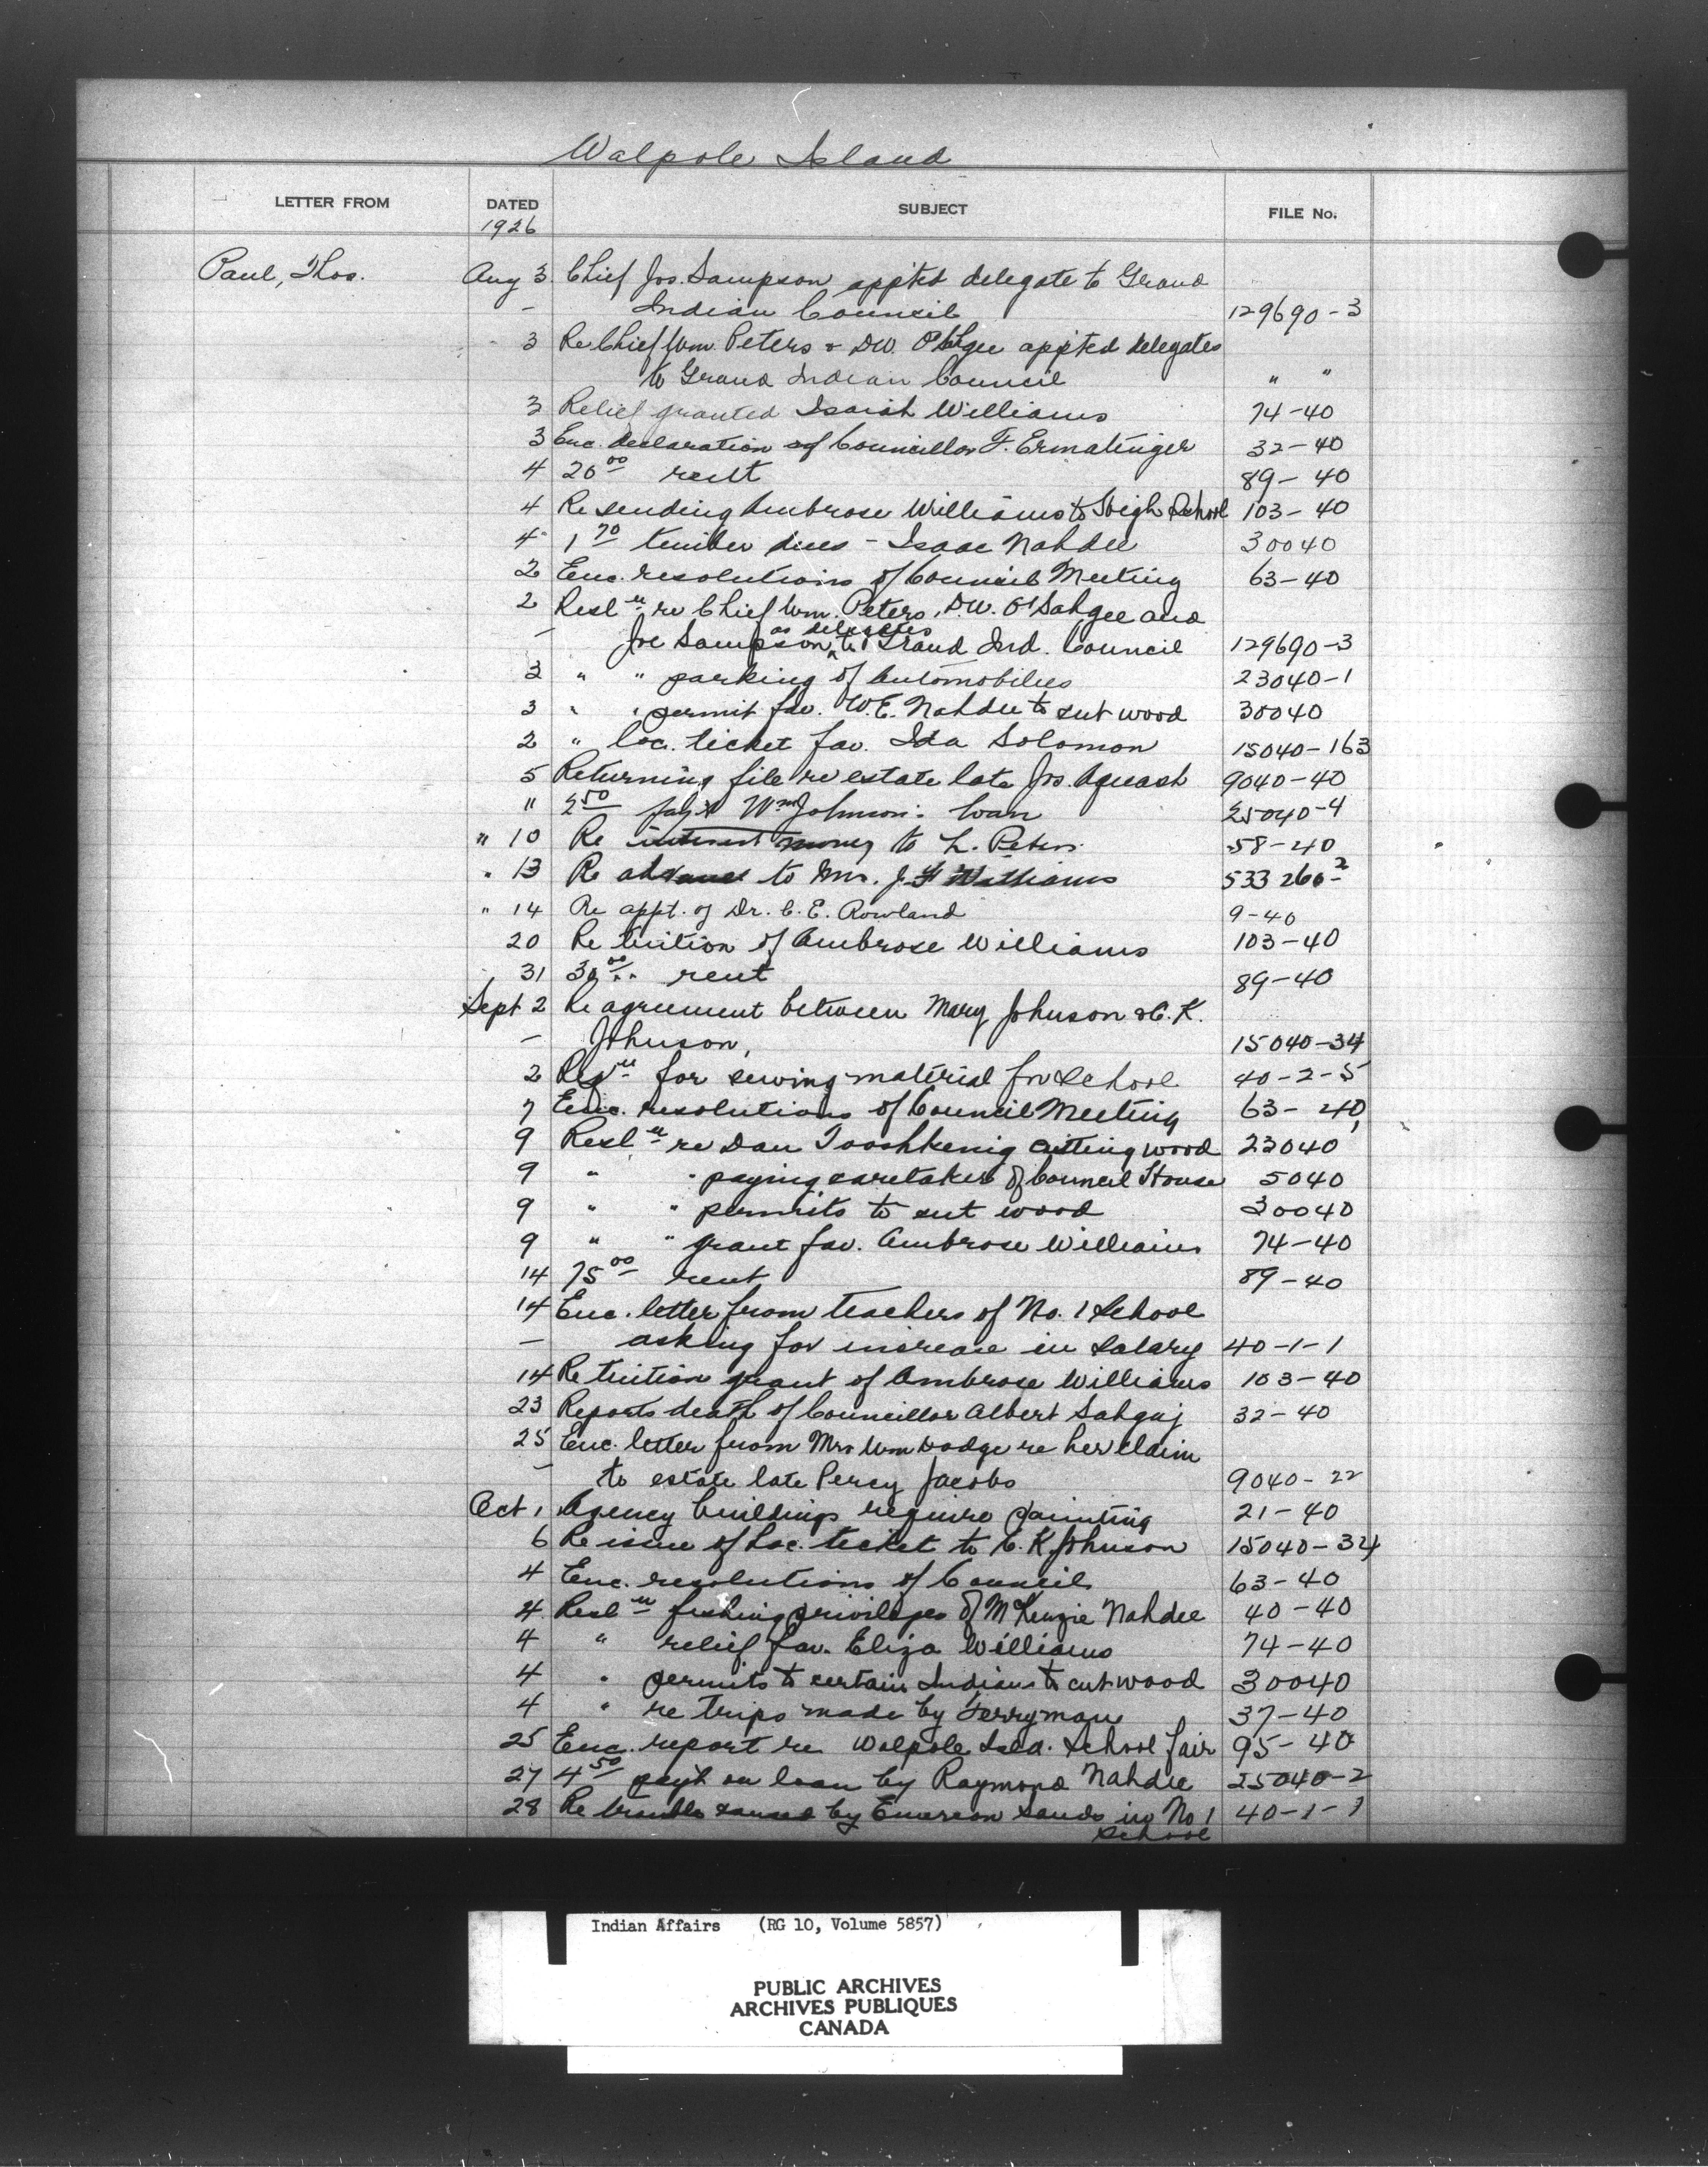 Walpole Island
LETTER FROM DATED SUBJECT FILE No.
1926
Paul, Thos. Aug 3 Chief Jos. Sampson appted delegate to Grand
— Indian Council 129690-3
3 Re Chief Wm. Peters & DW. appted delegates
to Grand Indian Council " "
3 Relief granted Isaiah Williams 74-40
3 Enc. declaration of Councillor F. Ermatinger 32-40
4 20 00 rent 89-40
4 Re sending Ambrose Williams to High School 103-40
4 1 70 timber dues - Isaac Nahdee 30040
2 Enc. resolutions of Council Meeting 63-40
2 Resl n re Chief Wm. Peters, D.W. O'Sahgee and
as delegates
— Joe Sampson, to Grand Ind. Council 129690-3
3 " " parking of Automobiles 23040-1
3 " " permit fav. W.E. Nahdee to cut wood 30040
2 " loc. ticket fav. Ida Solomon 15040-163
5 Returning file re estate late Jos. Aquash 9040-40
" 2 50 pay't Wm Johnson: loan 25040-4
" 10 Re interest money to L. Peters 58-40
" 13 Re advance to Mrs. J. F Williams 533260-2
" 14 Re appt. of Dr. C. E. Rowland 9-40
20 Re tuition of Ambrose Williams 103-40
31 30 00 rent 89-40
Sept 2 Re agreement between Mary Johnson & C. K.
— Johnson, 15040-34
2 Reqn for sewing material for School 40-2-5
7 Enc. resolutions of Council Meeting 63-40
9 Resl n re Dan Tooshkenig cutting wood 23040
9 " " paying caretaker of Council House 5040
9 " " permits to cut wood 30040
9 " " grant fav. Ambrose Williams 74-40
14 75 00 rent 89-40
14 Enc. letter from teachers of No. 1 School
— asking for increase in salary 40-1-1
14 Re tuition grant of Ambrose Williams 103-40
23 Reports death of Councillor Albert 32-40
25 Enc. letter from Mrs Wm Dodge re her claim
— to estate late Percy Jacobs 9040-22
Oct 1 Agency buildings require painting 21-40
6 Re issue of Loc. ticket to C. K. Johnson 15040-34
4 Enc. resolutions of Council 63-40
4 Resl n fishing privileges of McKenzie Nahdee 40-40
4 " relief fav. Eliza Williams 74-40
4 " permits to certain Indians to cut wood 30040
4 " re trips made by Ferryman 37-40
25 Enc. report re Walpole Isld. School fair 95-40
27 4 50 pay't on loan by Raymond Nahdee 25040-2
28 Re trouble caused by Emerson Sands in No 1 40-1-1
School
Indian Affairs (RG 10, Volume 5857)
PUBLIC ARCHIVES
ARCHIVES PUBLIQUES
CANADA